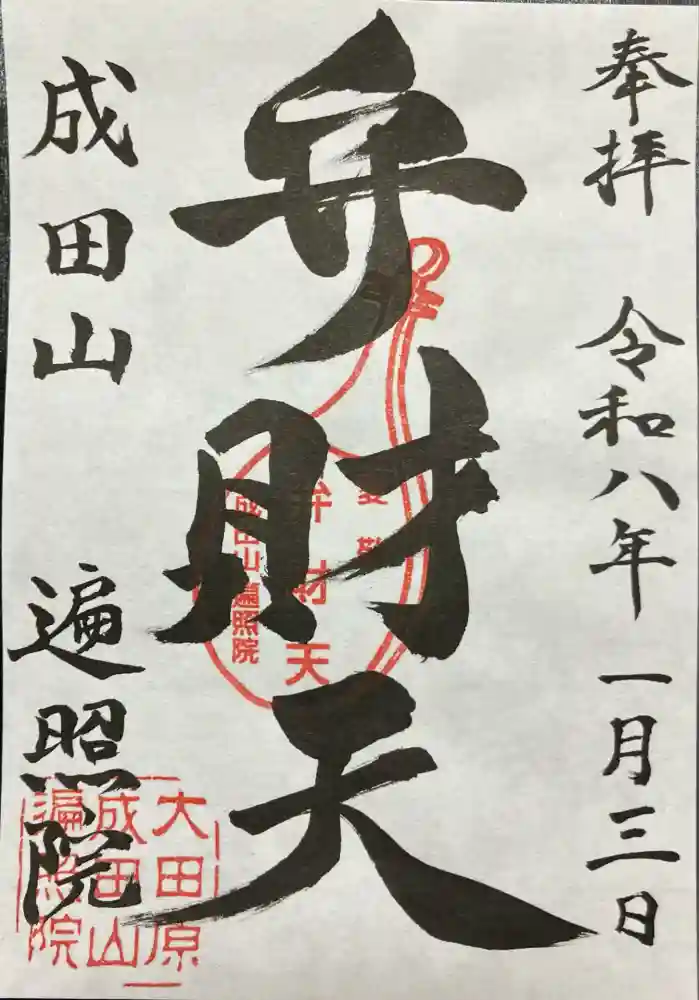 奉拝 令和八年 一月三日
弁財天
成田山 遍照院
弁財天
成田山遍照院
大田原
成田山
遍照院